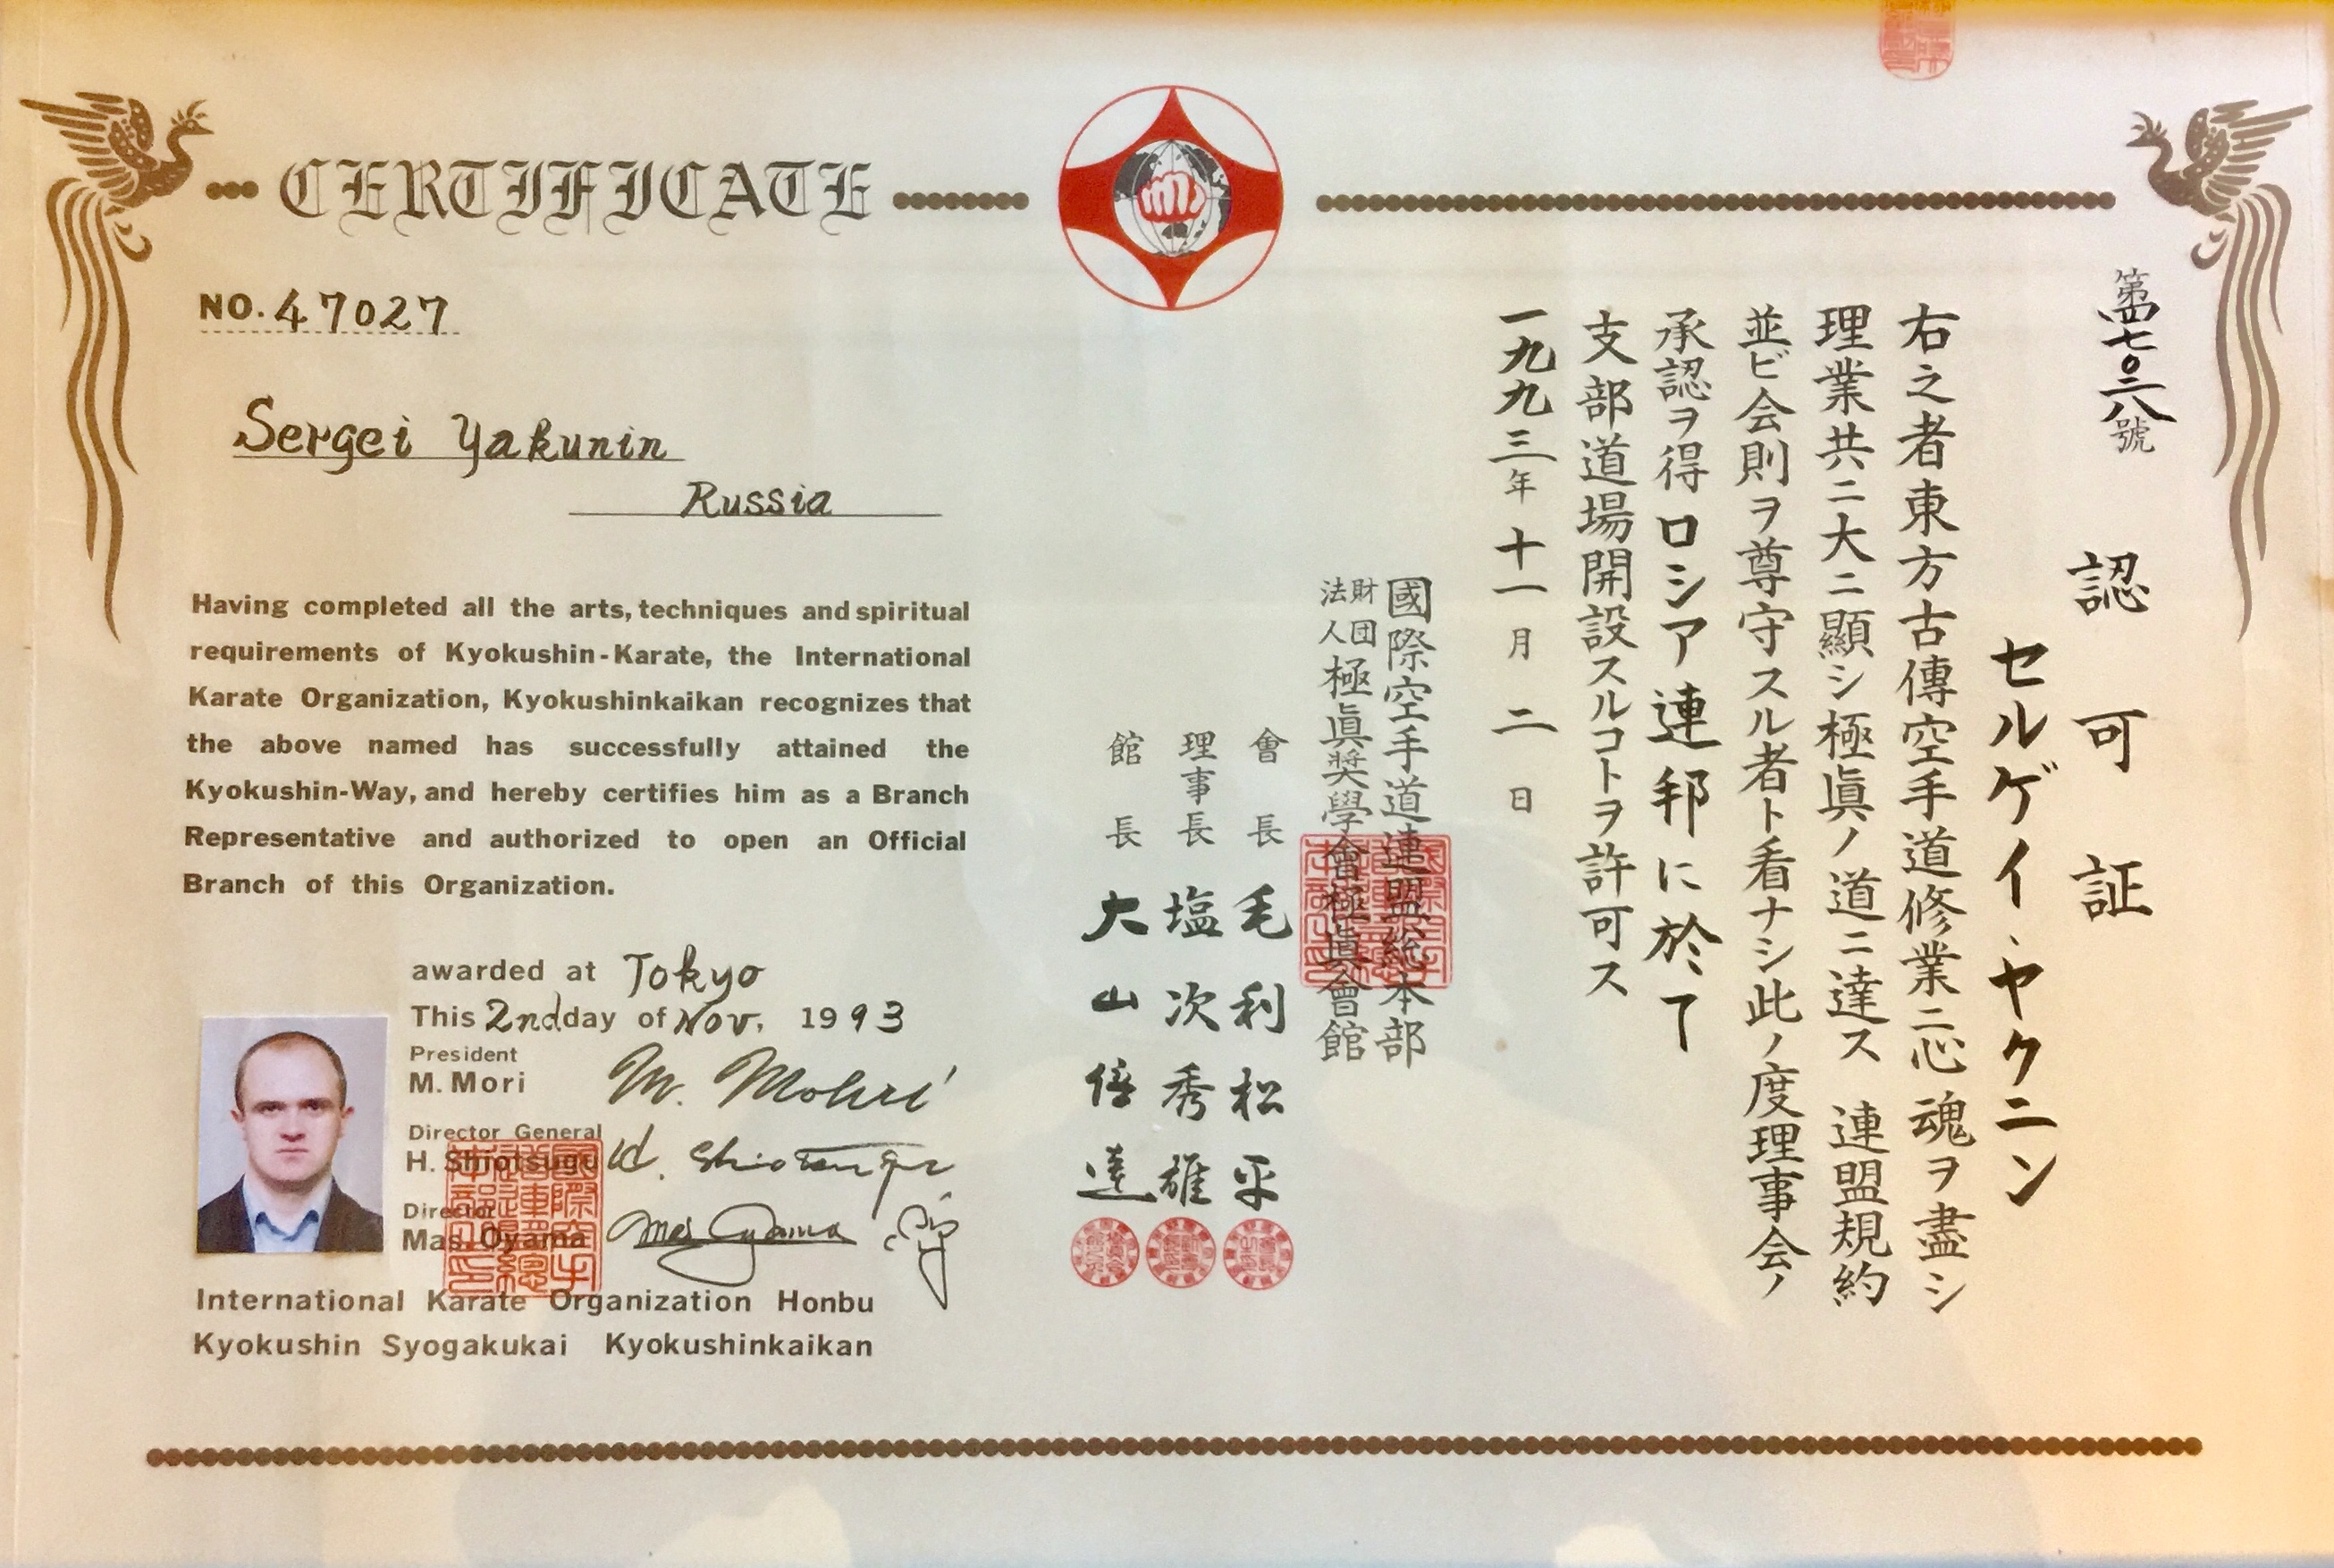 CERTIFICATE
NO. 47027
Sergei Yakunin
Russia
Having completed all the arts, techniques and spiritual
requirements of Kyokushin-Karate, the International
Karate Organization, Kyokushinkaikan recognizes that
the above named has successfully attained the
Kyokushin-Way, and hereby certifies him as a Branch
Representative and authorized to open an Official
Branch of this Organization.
awarded at Tokyo
This 2nd day of Nov. 1993
President
M. Mori M. Mohri
Director General
H. Shiotsugu H. Shiotsugu
Director
Mas. Oyama Mas Oyama
International Karate Organization Honbu
Kyokushin Syogakukai Kyokushinkaikan
第四七〇二八號
認可証
セルゲイ・ヤクニン
右之者東方古傳空手道修業ニ心魂ヲ盡シ
理業共ニ大ニ顯シ極眞ノ道ニ達ス 連盟規約
並ビ会則ヲ尊守スル者ト看ナシ此ノ度理事会ノ
承認ヲ得ロシア連邦に於て
支部道場開設スルコトヲ許可ス
一九九三年十一月二日
國際空手道連盟総本部
財団法人極眞奬學會極眞會館
會長 毛利松平
理事長 塩次秀雄
館長 大山倍達